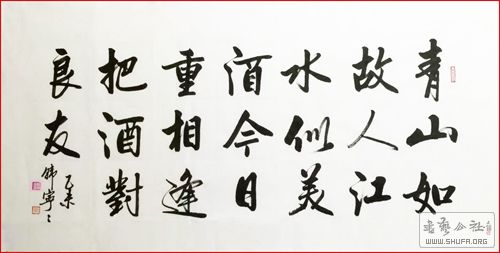 青山如
故人江
水似美
酒今日
重相逢
把酒對
良友
乙未
书艺公社
WWW.SHUFA.ORG